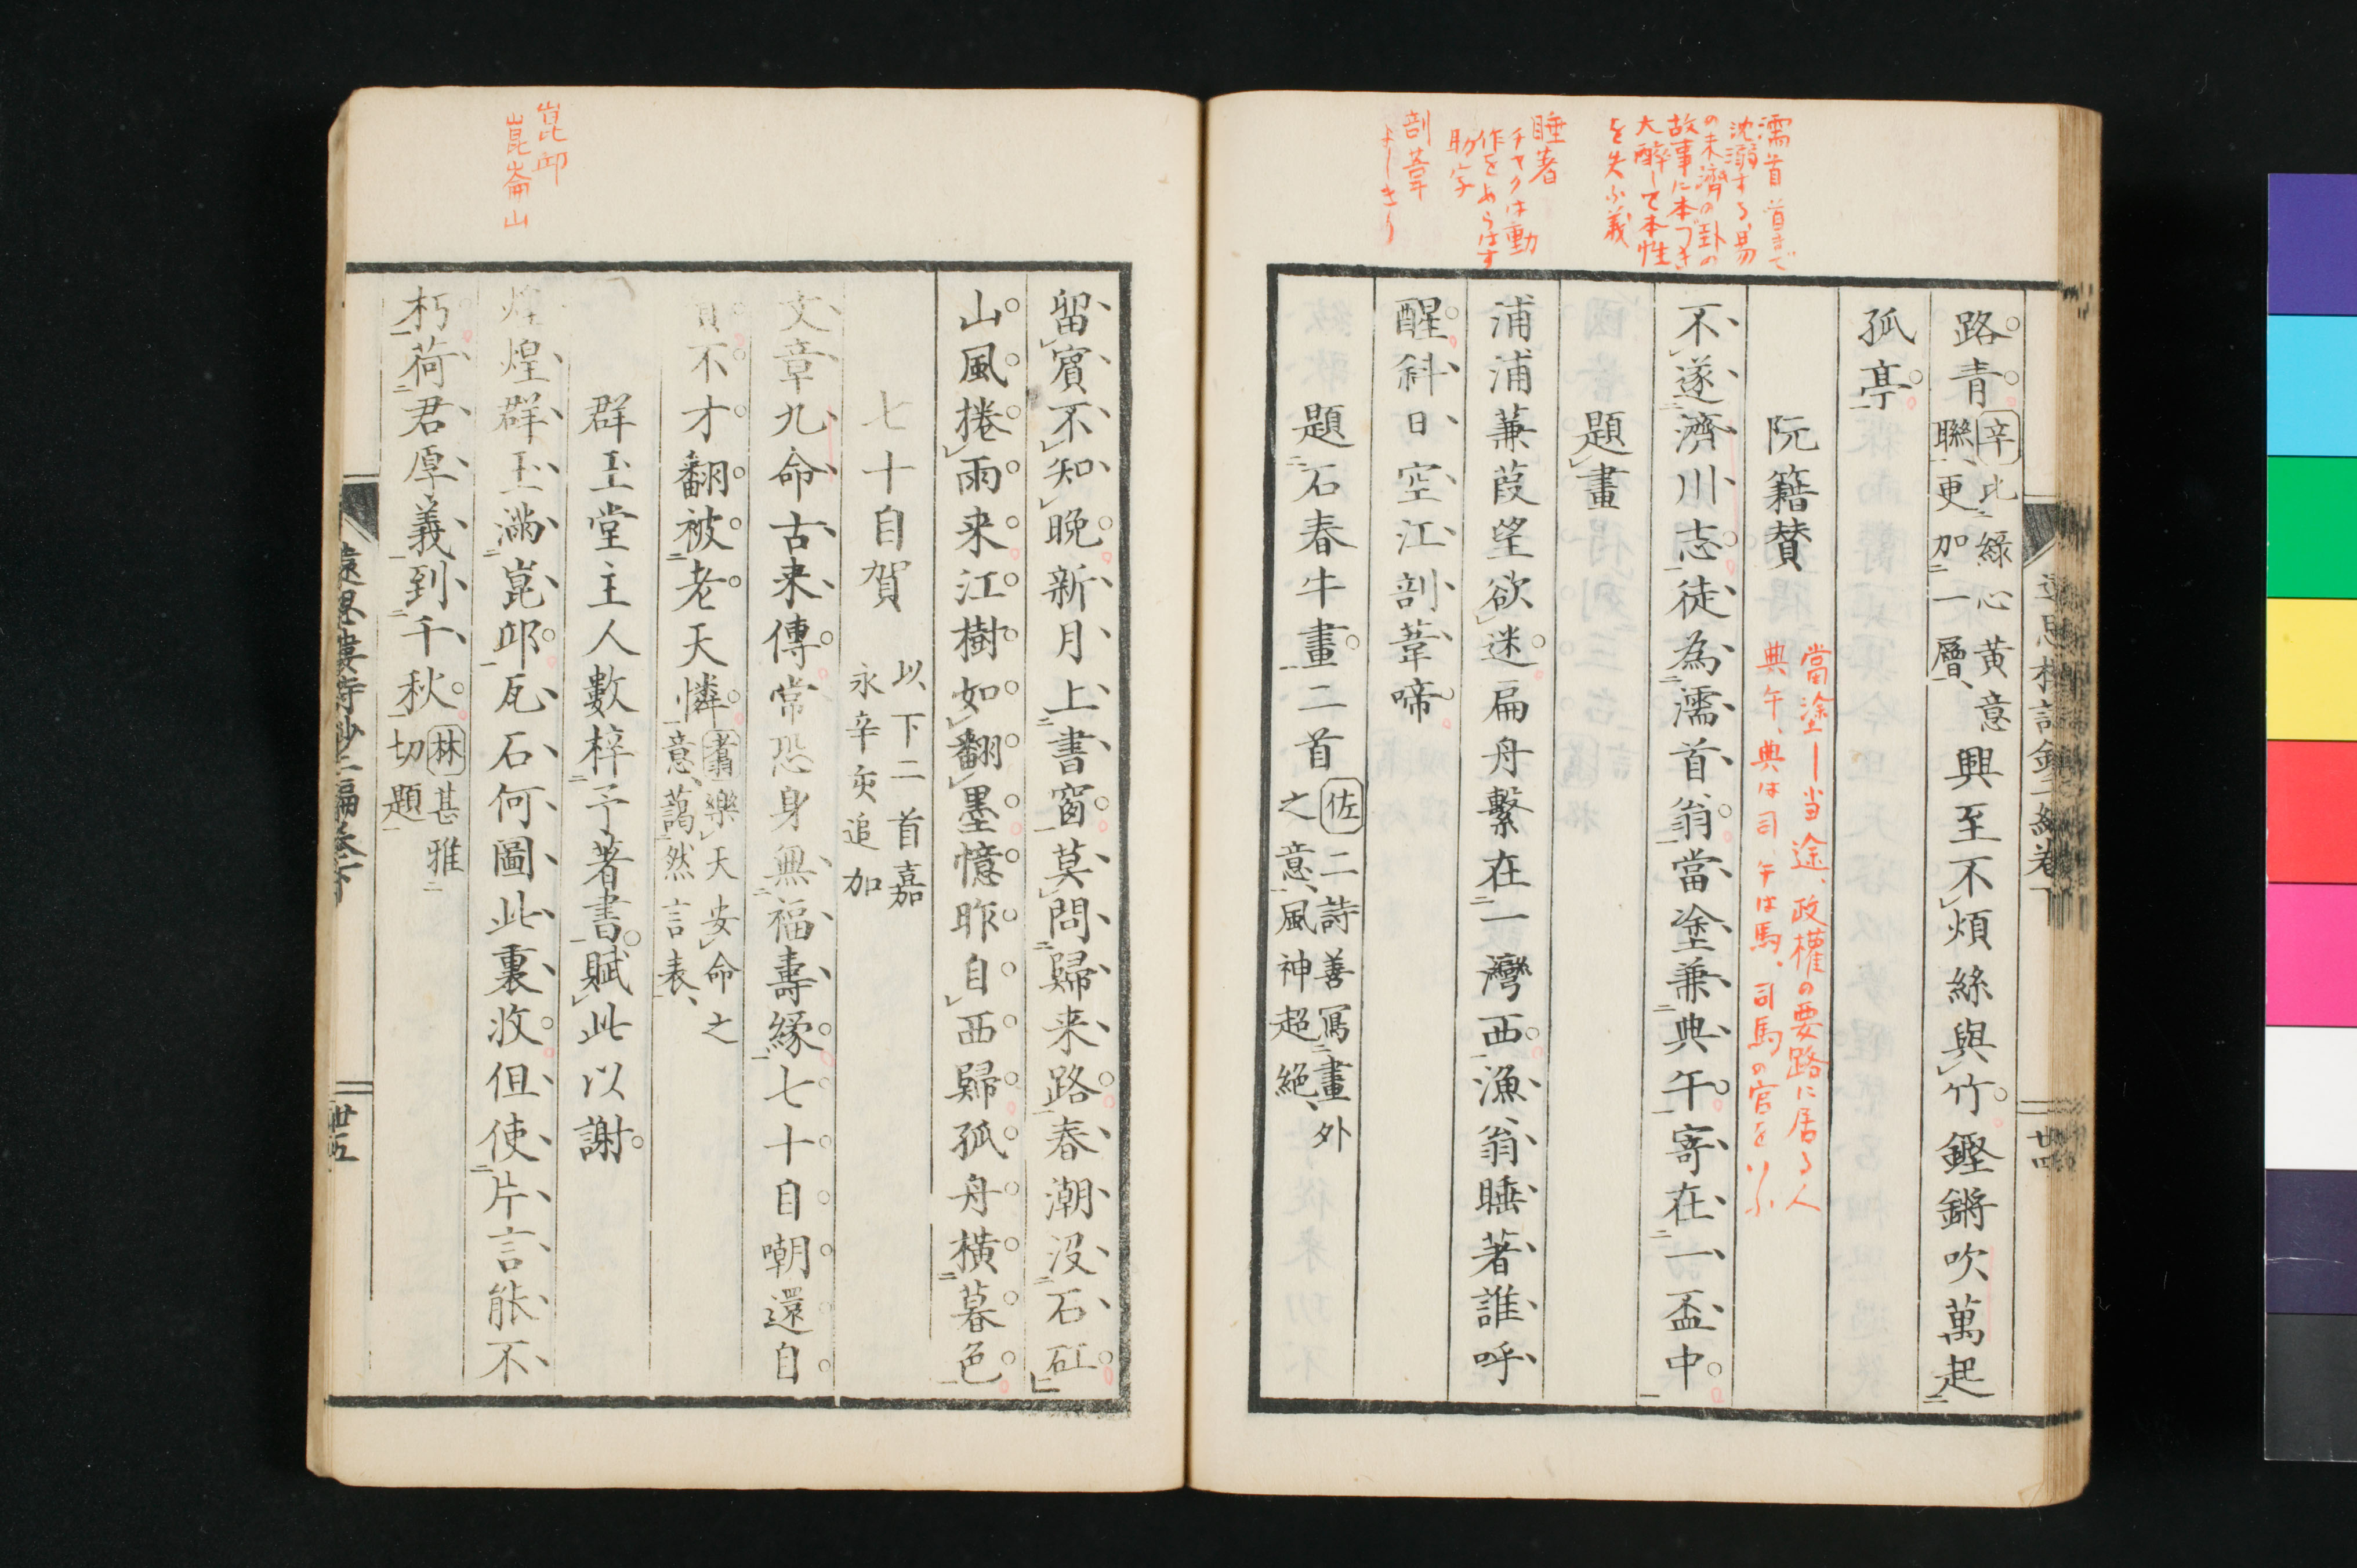 濡首 首まで
沈溺する、易
の未済の卦の
故事に本づき
大醉して本性
を失ふ義
睡著
チャクは動
作をあらはす
助字
剖葦
よしきり
路青
辛比綠心黃意
聯更加一層
興至不煩絲與竹鏗鏘吹萬起
孤亭
阮籍賛
當塗―当途、政權の要路に居る人
典午、典は司、午は馬、司馬の官をいふ
不遂濟川志徒為濡首翁當塗兼典午寄在一盃中
題畫
浦浦蒹葭望欲迷扁舟繫在一灣西漁翁睡著誰呼
醒斜日空江剖葦啼
題石春牛畫二首
佐二詩善寫畫外
之意風神超絶
廿四
崑邱
崑崙山
留賓不知晚新月上書窗莫問歸来路春潮沒石矼
山風捲雨来江樹如翻墨憶昨自西歸孤舟橫暮色
七十自賀
以下二首嘉
永辛亥追加
文章九命古来傳常恐身無福壽緣七十自嘲還自
賀不才翻被老天憐
翥樂天安命之
意藹然言表
群玉堂主人數梓予著書賦此以謝
煌煌群玉滿崑邱瓦石何圖此裏收但使片言能不
朽荷君厚義到千秋
林甚雅
切題
遠思樓詩鈔二編卷下
廿五